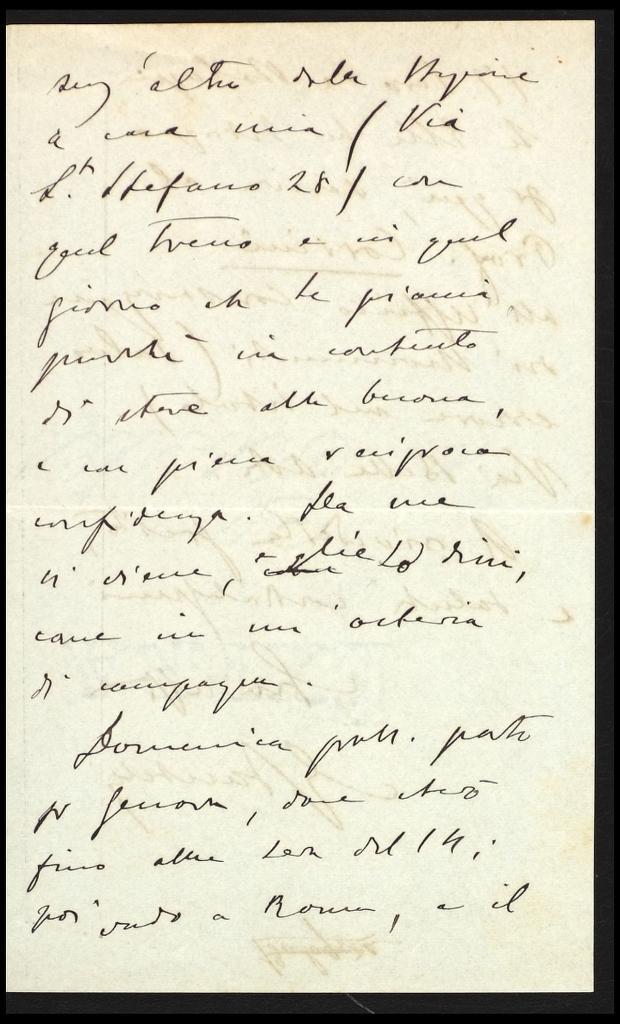 senz'altro dalla stazione
a casa mia (Via
S.to Stefano 28) con
quel treno e in quel
giorno che le piacerà,
purché sia contento
di stare alla buona,
e con piena reciproca
confidenza. Da me
si viene, e glielo dissi,
come in un'osteria
di campagna.
Domenica pross. parto
per Genova, dove starò
fino alla sera del 14;
poi vado a Roma, e il